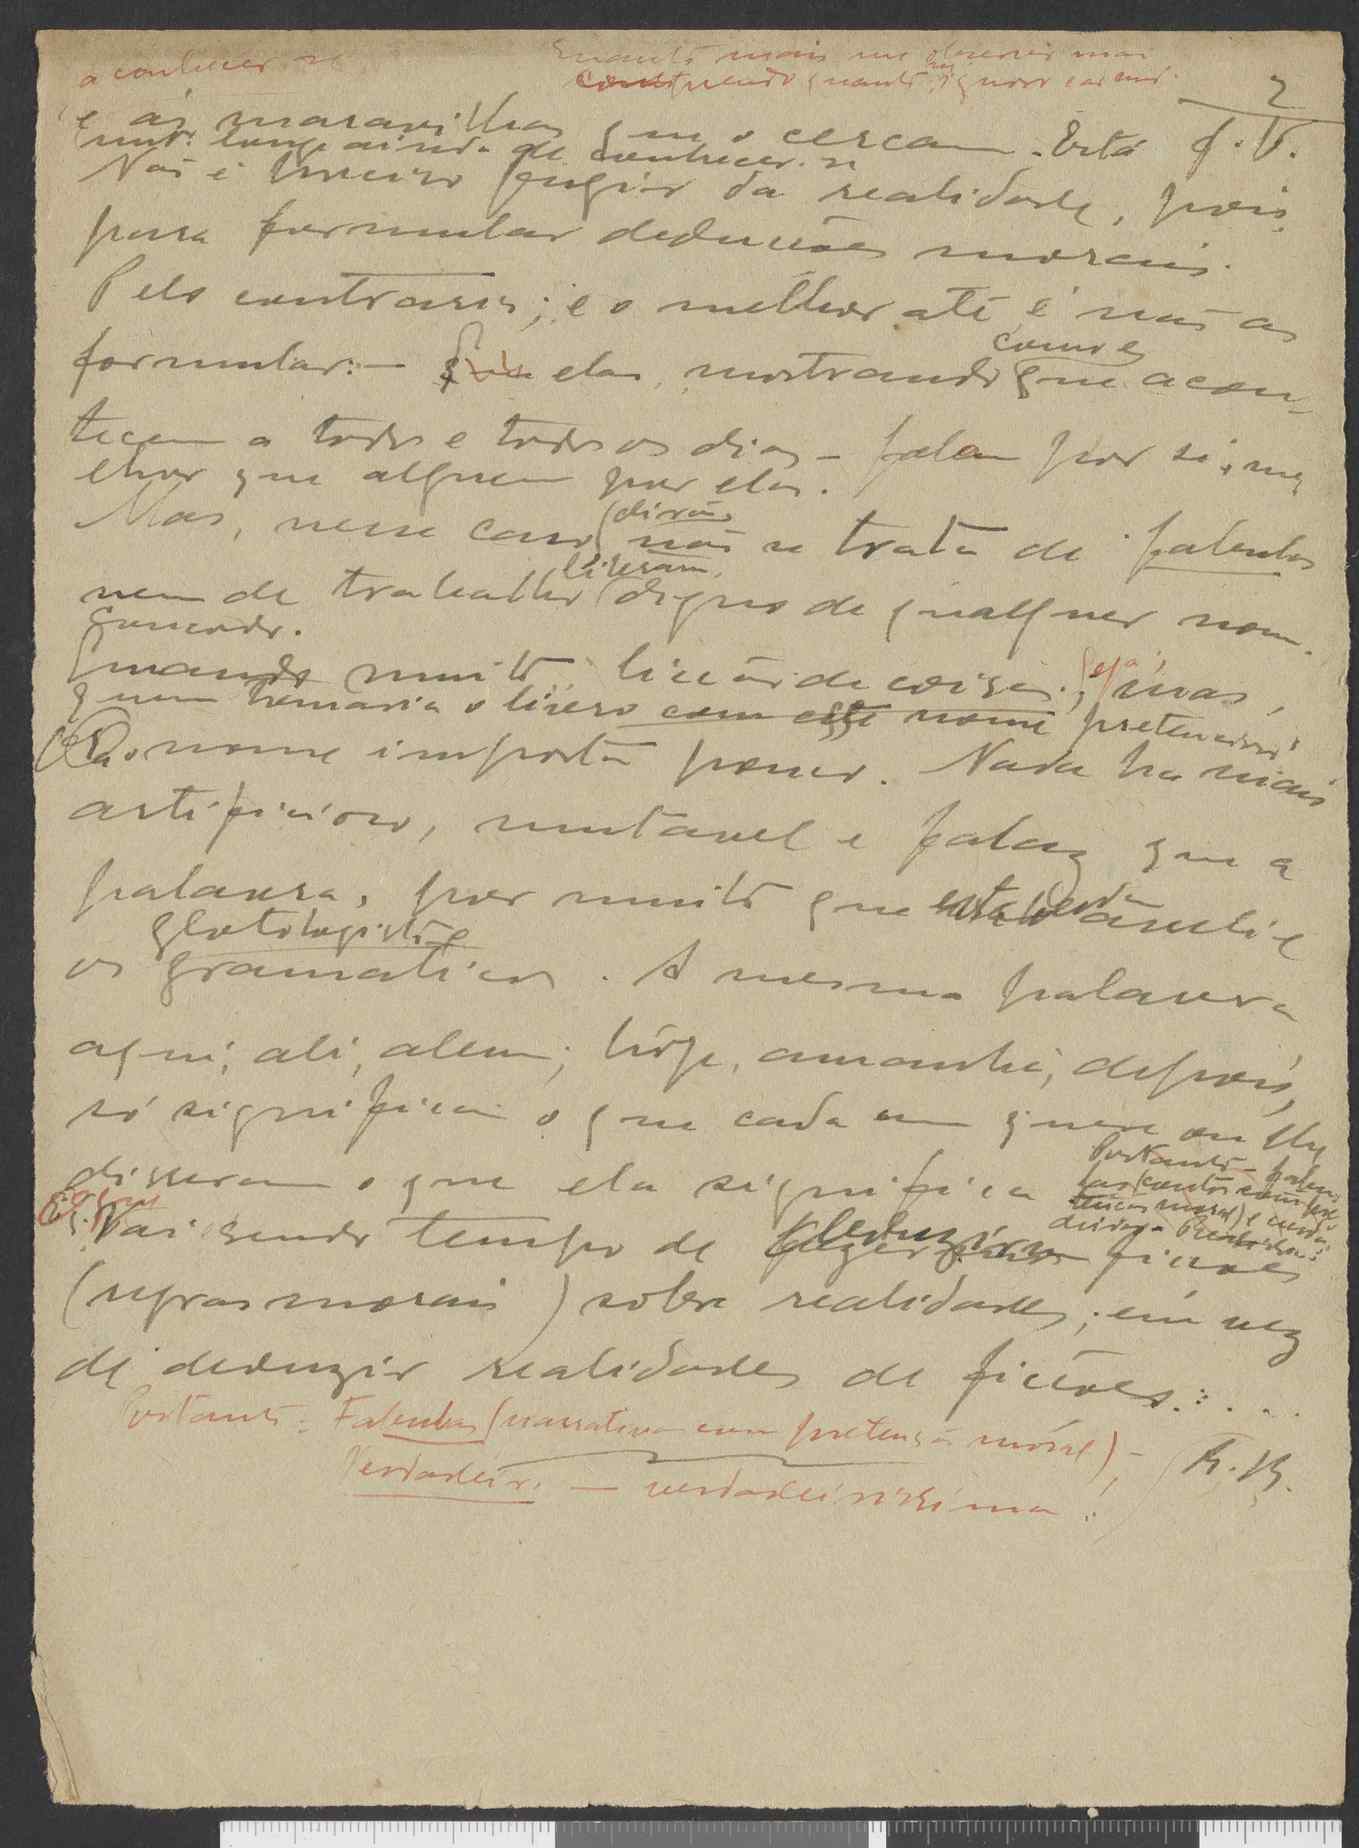 a conhecer se
Quanto mais me observo mais
compreendo quanto ignoro
2
e ás maravilhas que o cercam. Está
muito longe ainda de conhecer-se
Não é preciso fugir da realidade, pois,
para formular deduções morais.
Pelo contrario; e o melhor até é não as
formular: — elas, mostrando como e que acon-
tecem a todos e todos os dias — falam por si, me-
lhor que alguem por elas.
Mas, nesse caso (dirão) não se trata de fabulas
nem de trabalho literario digno de qualquer nome.
Concordo.
Quando muito lição de coisas. Seja; mas,
quem tomaria o livro com esse nome pretencioso?
O nome importa pouco. Nada ha mais
artificioso, mutavel e falaz que a
palavra, por muito que
os glotologistas e gramaticos. A mesma palavra
aqui, ali, alem; hoje, amanhã, depois,
só significa o que cada um quere ou lhe
disseram o que ela significa
Portanto — fabu-
las (contos com pre-
tenção moral) e
Vai sendo tempo de deduzir ficções
(regras morais) sobre realidades, em vez
de deduzir realidades de ficções....
Portanto: Fabulas (narrativa com pretensão moral) —
Verdadeira — verdadeirissima!